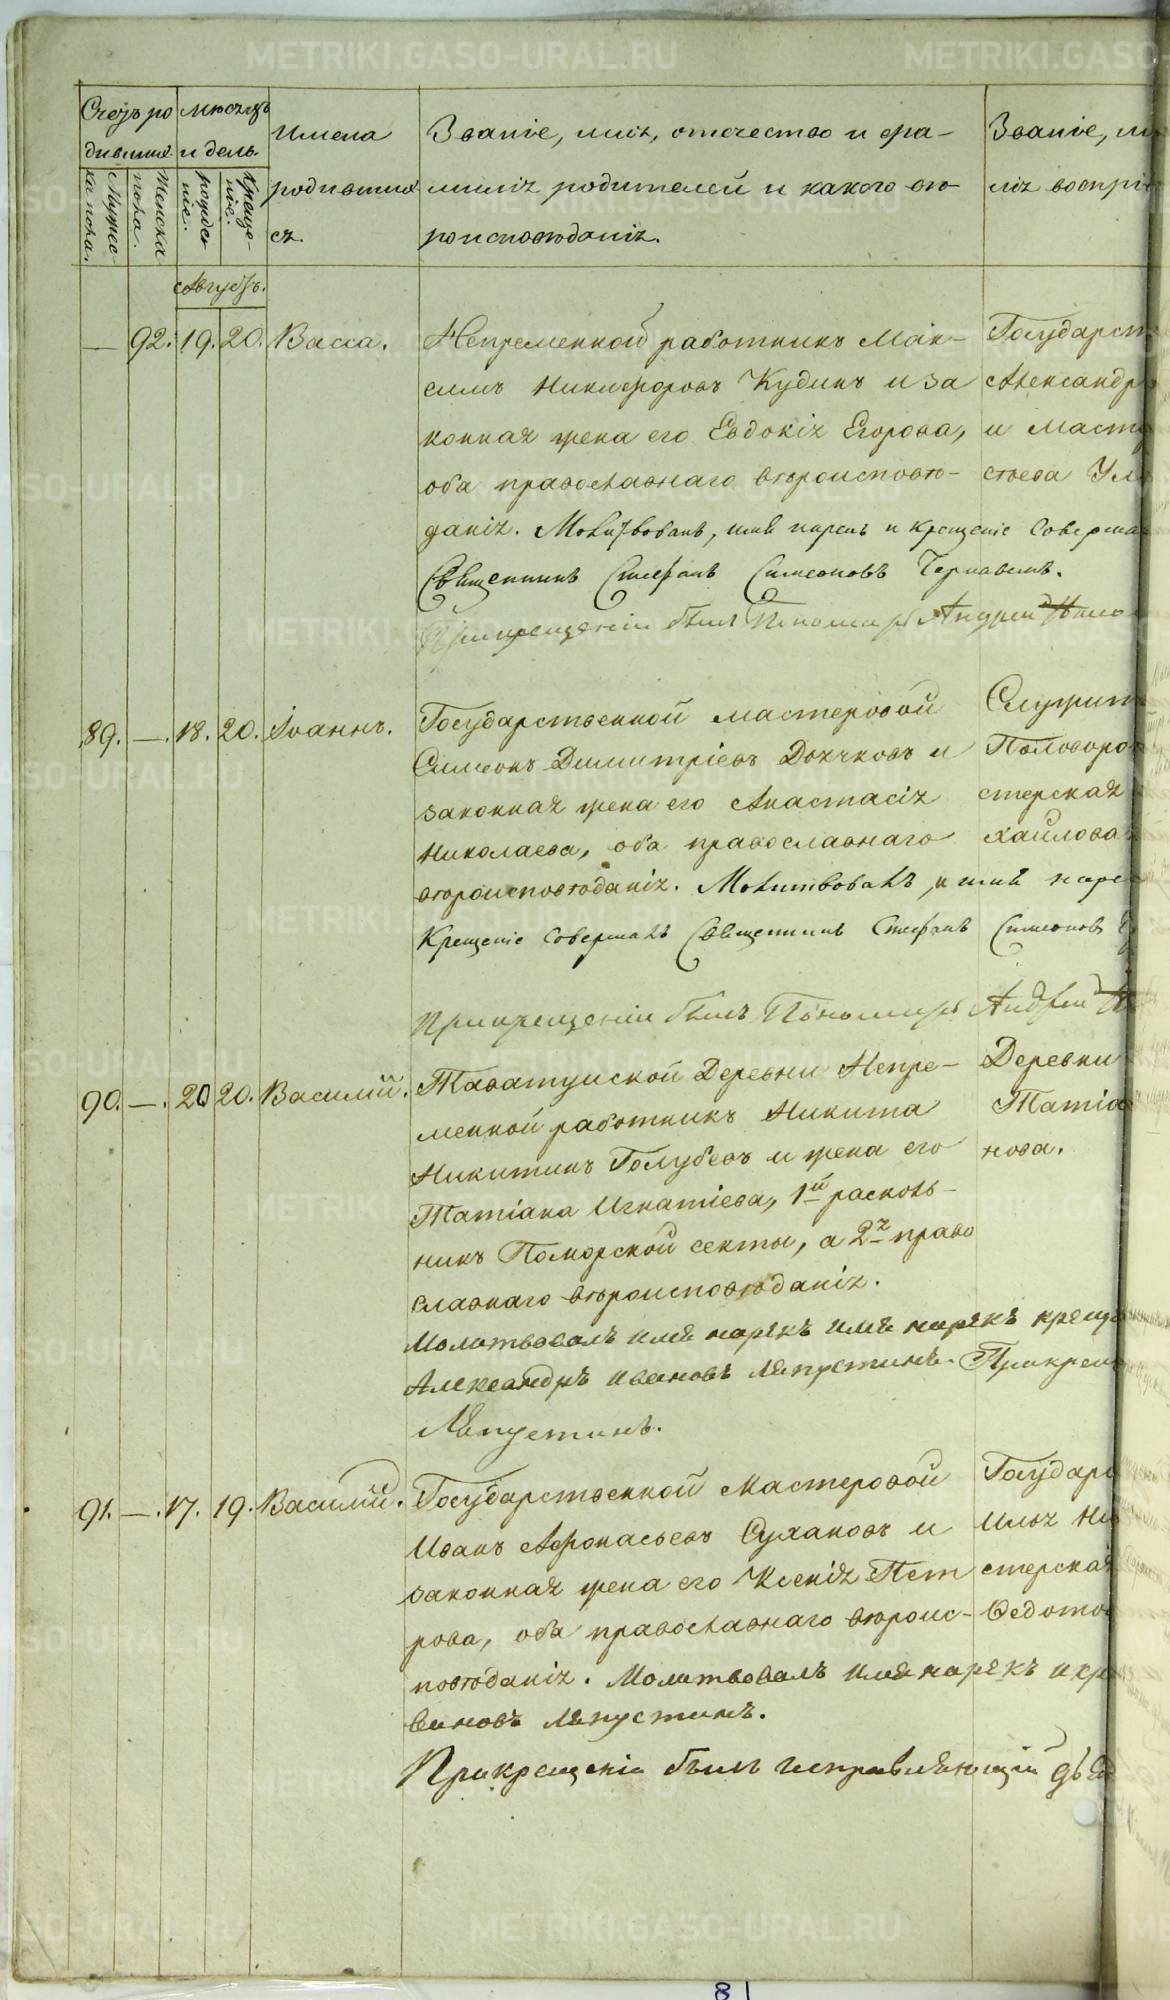 METRIKI.GASO-URAL.RU
Счетъ ро мѣсяцъ
дившихся и день.
Мужес-
ка пола.
Женска
пола.
рожде-
ніе.
Креще-
ніе.
Имена
родивших
ся.
Званіе, имя, отечество и фа-
милія родителей и какого вѣ-
роисповѣданія.
Званіе,
лія воспріе
Августъ.
— 92. 19. 20. Васса.
Непременной работникъ Мак-
симъ Никифоровъ Кудинъ и за
конная жена его Евдокія Егорова,
оба православнаго вѣроисповѣ-
данія. Молитвовалъ, имя нарекъ и крещеніе соверша
Священникъ Стефанъ Симеоновъ Чернавинъ.
При крещеніи былъ Пономарь Андрей
Государст
Александр
и Масте
стьева Ул
89. —. 18. 20. Іоаннъ.
Государственной мастеровой
Симеонъ Димитріевъ и
законная жена его Анастасія
Николаева, оба православнаго
вѣроисповѣданія. Молитвовалъ, и имя наре
Крещеніе совершалъ Священникъ Стефанъ Симеоновъ
При крещеніи былъ Пономарь Андрей
Служит
Половоро
стерская
хайлова
90. —. 20 20. Василій.
Таватуйской Деревни Непре-
менной работникъ Никита
Никитинъ Голубевъ и жена его
Татіана Игнатіева, 1й расколь-
никъ Поморской секты, а 2я право
славнаго вѣроисповѣданія.
Молитвовалъ имя нарекъ имя нарекъ креще
Александръ Ивановъ Ляпустинъ. При креще
Ляпустинъ.
Деревни
Татіа
нова.
91. —. 17. 19. Василій.
Государственной Мастеровой
Иванъ Афонасьевъ Сухановъ и
законная жена его Ксенія Пет
рова, оба православнаго вѣроис-
повѣданія. Молитвовалъ имя нарекъ и кре
вановъ Ляпустинъ.
При крещеніи былъ исправляющій дѣ
Государ
Илья Ни
стерская
Федото
81